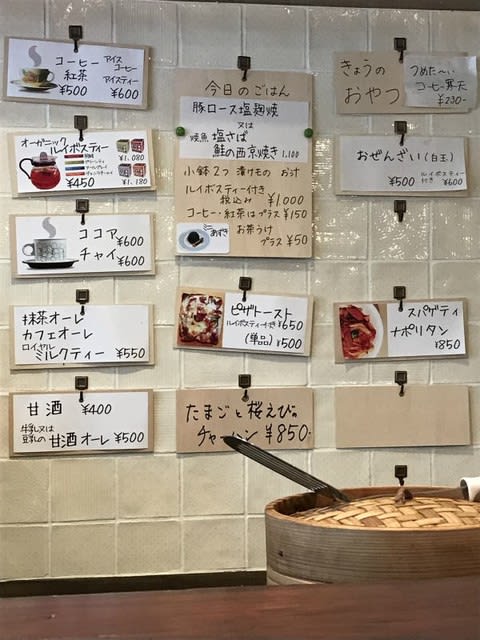 コーヒー
紅茶
¥500
アイス
コーヒー
アイスティー
¥600
オーガニック
ルイボスティー
¥450
¥1,080
¥1,180
ココア ¥600
チャイ ¥600
抹茶オーレ
カフェオーレ
ロイヤル
ミルクティー ¥550
甘酒 ¥400
牛乳又は
豆乳の 甘酒オーレ ¥500
今日のごはん
豚ロース塩麹焼
又は
焼魚 塩さば
鮭の西京焼き 1,100
小鉢2つ 漬けもの お汁
ルイボスティー付き
税込み ¥1,000
コーヒー・紅茶はプラス¥150
お茶うけ
プラス ¥50
ピザトースト
ルイボスティー付き ¥650
(単品) ¥500
たまごと桜えびの
チャーハン ¥850-
きょうの
おやつ
つめた〜い
コーヒー寒天
¥230-
おぜんざい(白玉)
¥500
ルイボスティー
付き ¥600
スパゲティ
ナポリタン
¥850